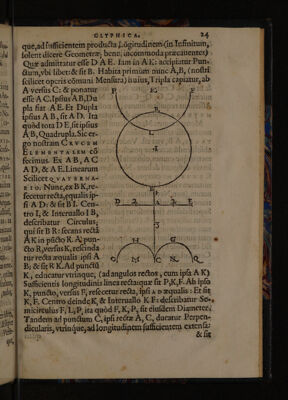 GLYPHICA. 24
que,ad sufficientem producta,Logitudinem (in Infinitum,
solent dicere Geometræ) bene, incommoda præcauentes)
Quæ admittatur esse D A E. Iam in A K: accipiatur Pun-
ctum, vbi libet: & sit B. Habita primùm nunc A, B, (nostri
scilicet operis cōmuni Mensura) huius, Tripla capiatur, ab
A versus C: & ponatur
esse A C. Ipsius A B, Du
pla fiat A E. Et Dupla
ipsius A B, sit A D. Ita
quòd tota D E, sit ipsius
A B, Quadrupla. Sic er-
go nostram CRVCEM
ELEMENTALEM cō
fecimus. Ex A B, A C
A D, & A E. Linearum
Scilicet QVATERNA-
RIO. Nunc, ex B K, re-
secetur recta, æqualis ip-
si A D: & sit B I. Cen-
tro I, & Interuallo I B,
describatur Circulus,
qui sit B R: secans rectā
A K in pūcto R. A' pun-
cto R, versus K, rescinda
tur recta æqualis ipsi A
B; & sit R K. Ad punctū
K, educatur vtrinque, (ad angulos rectos, cum ipsa A K)
Sufficientis longitudinis linea recta: quæ sit P, K, F. Ab ipso
K, puncto, versus F, resecetur recta, ipsi A D æqualis: Et sit
K F. Centro deinde K, & Interuallo K F: describatur Se-
micirculus F, L, P, ita quòd F, K, P, sit eiusdem Diameter.
Tandem ad punctum C, ipsi rectæ A, C, ducatur Perpen-
dicularis, vtrinque, ad longitudinem sufficientem extensa:
& sit
P K F
R
L
I
B
D A E
H G
O M C N Q